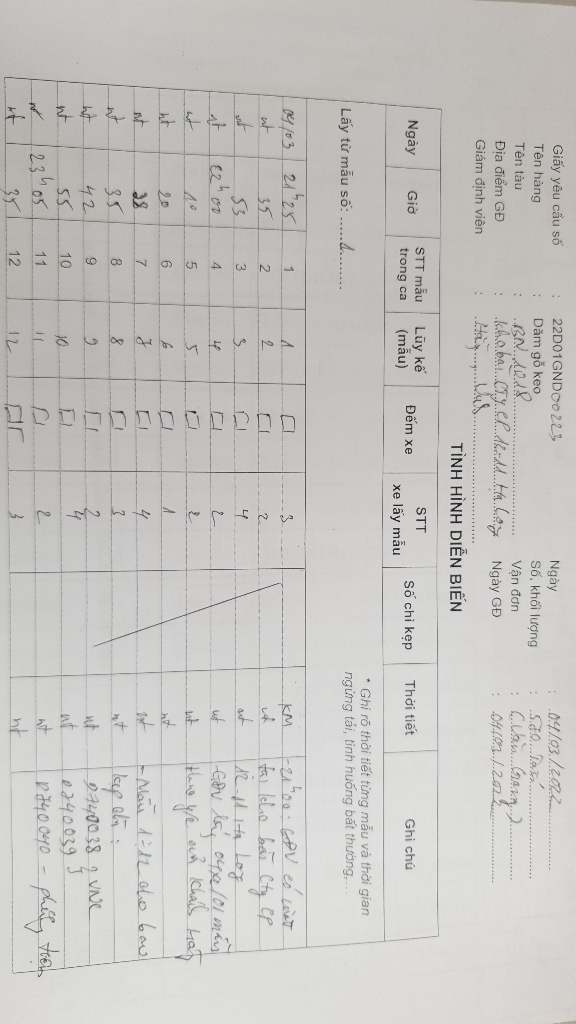 Giấy yêu cầu số : 22D01GND00223 Ngày : 04/03/2022
Tên hàng : Dăm gỗ keo Số, khối lượng : 550
Tên tàu : BN 1018 Vận đơn :
Địa điểm GĐ : Kho bãi CTy CP 12-11 Hạ Long Ngày GĐ : 04/03/2022
Giám định viên :
TÌNH HÌNH DIỄN BIẾN
Ngày Giờ STT mẫu trong ca Lũy kế (mẫu) Đếm xe STT xe lấy mẫu Số chì kẹp Thời tiết Ghi chú
Lấy từ mẫu số: 1 * Ghi rõ thời tiết từng mẫu và thời gian
ngừng tải, tình huống bất thường,...
04/03 21h25 1 1 3 KM - 21h00: GĐV có mặt
nt 35 2 2 2 nt tại kho bãi Cty CP
nt 53 3 3 4 nt 12-11 Hạ Long
nt 22h00 4 4 2 nt - GĐV lấy 04xe/01mẫu
nt 10 5 5 2 nt theo y/c của khách hàng
nt 20 6 6 1 nt
nt 28 7 7 4 nt - Mẫu 1÷12 cho bao
nt 35 8 8 3 nt kẹp chì:
nt 42 9 9 2 nt 0740038 } VNC
nt 55 10 10 4 nt 0740039
nt 23h05 11 11 2 nt 0740040 -
nt 35 12 12 3 nt